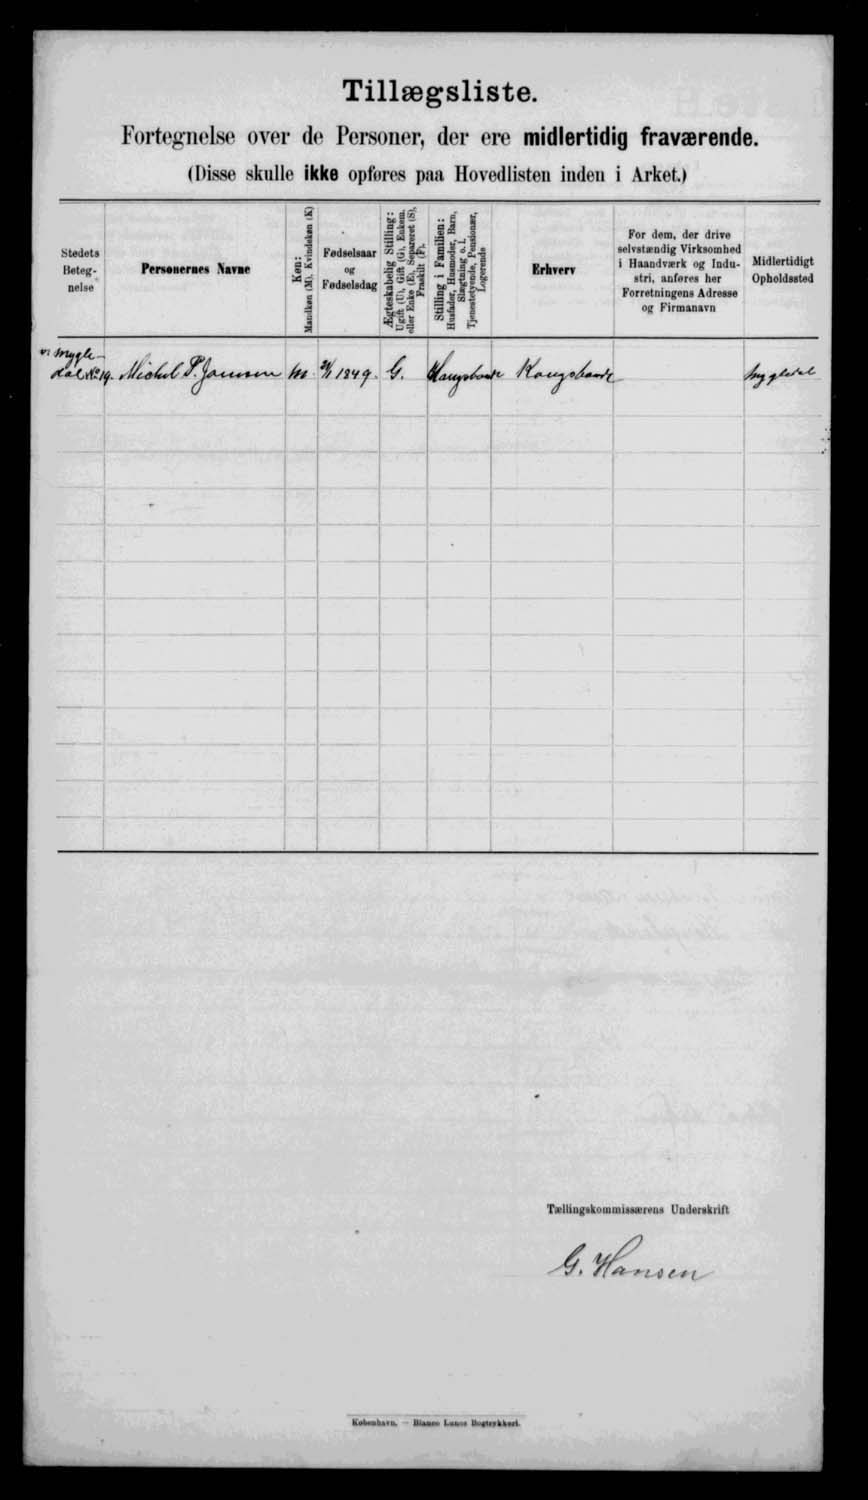 Tillægsliste.
Fortegnelse over de Personer, der ere midlertidig fraværende.
(Disse skulle ikke opføres paa Hovedlisten inden i Arket.)
Stedets
Beteg-
nelse
Personernes Navne
Køn:
Mandkøn (M), Kvindekøn (K)
Fødselsaar
og
Fødselsdag
Ægteskabelig Stilling:
Ugift (U), Gift (G), Enkem.
eller Enke (E), Separeret (S),
Fraskilt (F).
Stilling i Familien:
Husfader, Husmoder, Barn,
Slægtning o. l.
Tjenestetyende, Pensionær,
Logerende
Erhverv
For dem, der drive
selvstændig Virksomhed
i Haandværk og Indu-
stri, anføres her
Forretningens Adresse
og Firmanavn
Midlertidigt
Opholdssted
Mygle-
dal No 19. Michel P. M. 1849. G. Kongsbonde Kongsbonde Mygledal
Tællingskommissærens Underskrift
G. Hansen
København. — Bianco Lunos Bogtrykkeri.